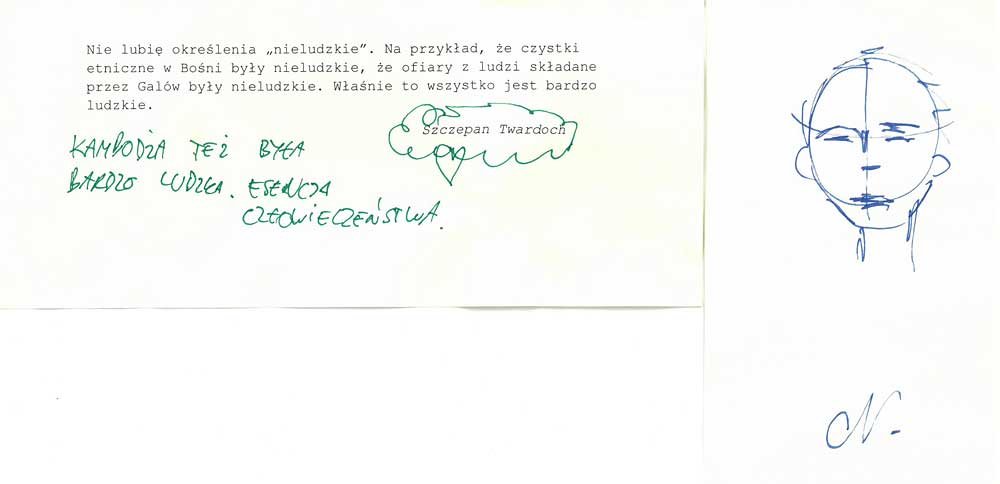 Nie lubię określenia „nieludzkie”. Na przykład, że czystki
etniczne w Bośni były nieludzkie, że ofiary z ludzi składane
przez Galów były nieludzkie. Właśnie to wszystko jest bardzo
ludzkie.
Szczepan Twardoch
KAMBODŻA TEŻ BYŁA
BARDZO LUDZKA. ESENCJA
CZŁOWIECZEŃSTWA.
N.